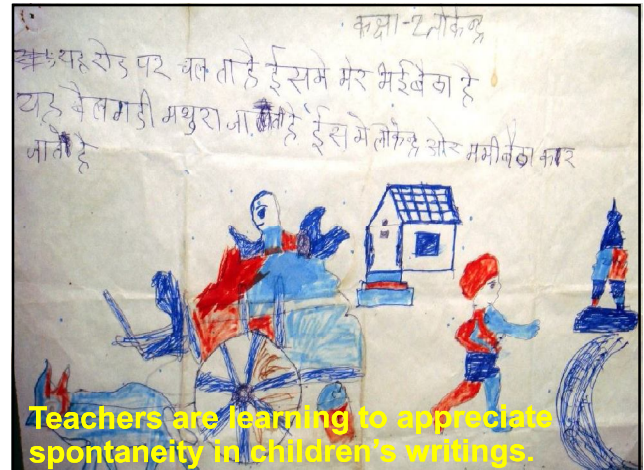 कक्षा-2 लोकेन्द्र
यह रोड पर चलता है ईसमे मेर भईबैठा है
यह बैलगाडी मथुरा जा है ईसमे लोकेन्द्र ओर ममी बैठा कार
जाते है
Teachers are learning to appreciate
spontaneity in children's writings.